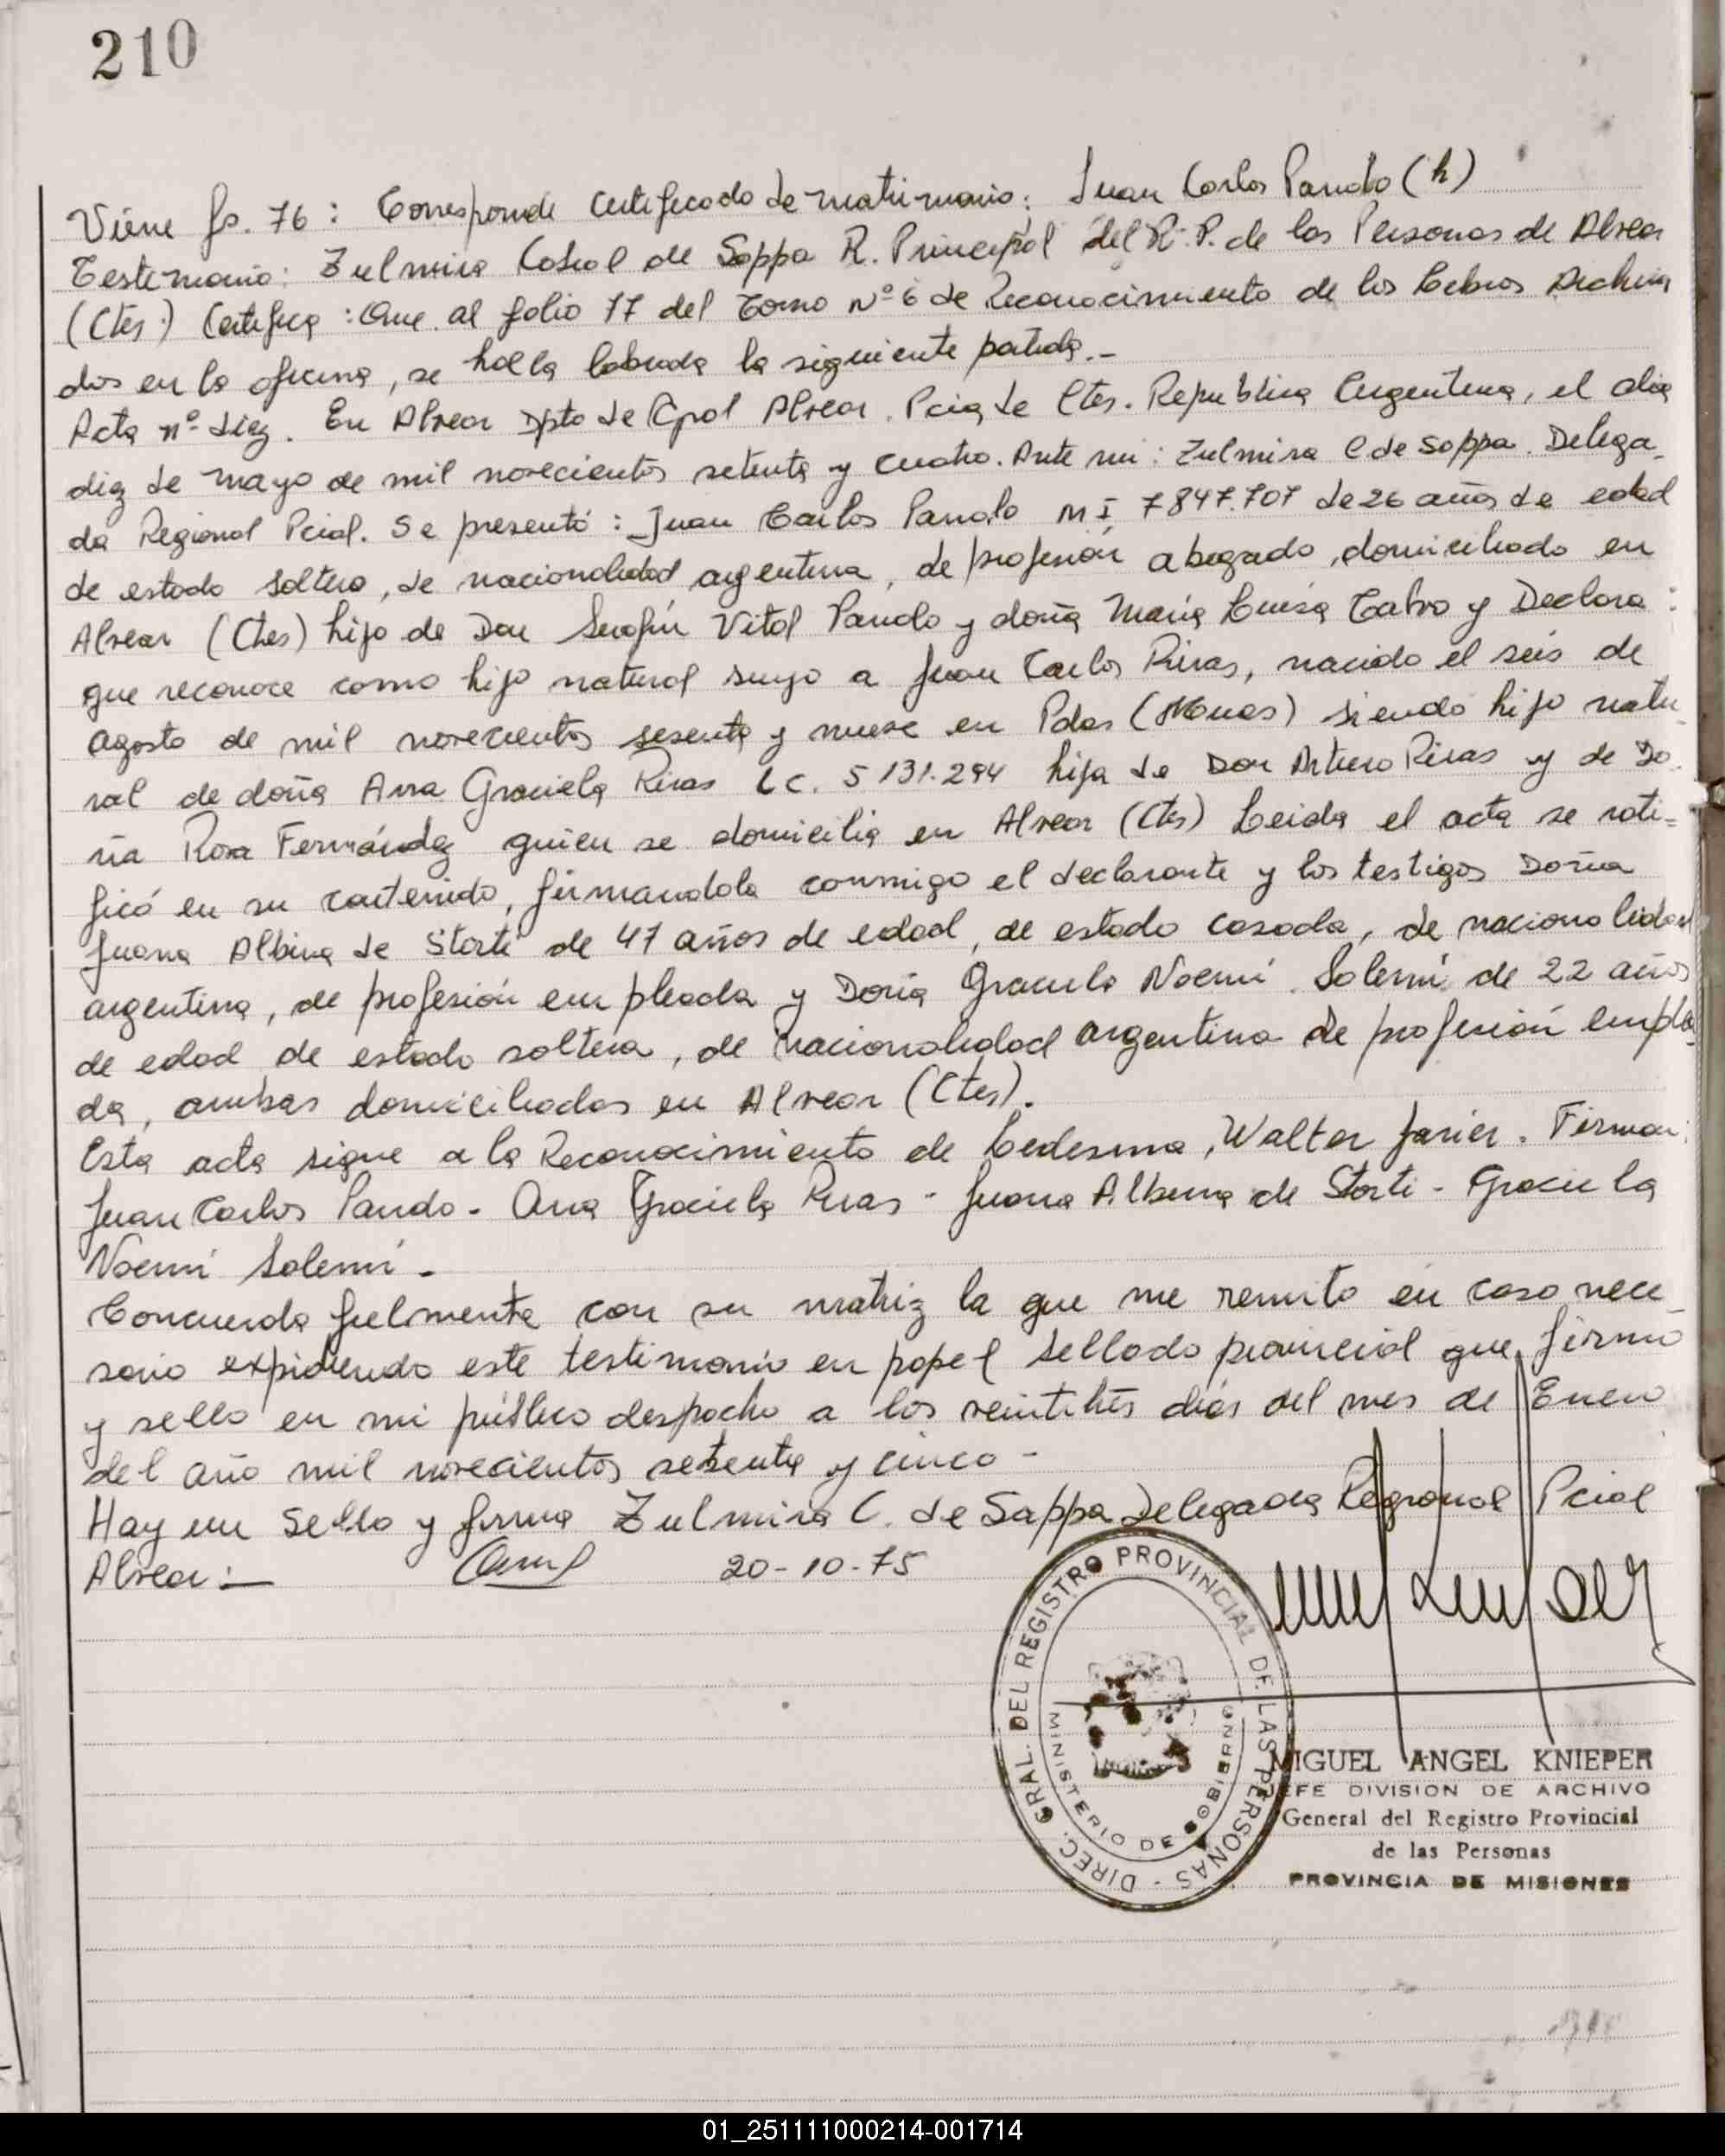 210
Viene fs. 76: Corresponde Certificado de matrimonio: Juan Carlos Pando (h)
Testimonio: Zulmira de Sappa R. Principal del R. P. de las Personas de Alvear
(Ctes.) Certifica: Que al folio 77 del Tomo Nº 6 de Reconocimiento de los Libros Archiva
dos en la oficina, se halla labrada la siguiente partida.-
Acta nº diez. En Alvear Dpto de Gral Alvear. Pcia de Ctes. Republica Argentina, el dia
diez de mayo de mil novecientos setenta y cuatro. Ante mi: Zulmira C de Sappa. Delega_
da Regional Pcial. Se presentó: Juan Carlos Pando M I 7847.707 de 26 años de edad
de estado soltero, de nacionalidad argentina, de profesión abogado, domiciliado en
Alvear (Ctes) hijo de Don Serafín Vital Pando y doña María Luisa Calvo y Declara:
que reconoce como hijo natural suyo a Juan Carlos Rivas, nacido el seis de
agosto de mil novecientos sesenta y nueve en Pdas (Mnes) siendo hijo natu_
ral de doña Ana Graciela Rivas L C. 5 131.294 hija de Don Arturo Rivas y de Do_
ña Rosa Fernández quien se domicilia en Alvear (Cts) Leida el acta se rati=
ficó en su contenido, firmandola conmigo el declarante y los testigos Doña
Juana Albina de Storti de 47 años de edad, de estado casada, de nacionalidad
argentina, de profesión empleada y Doña Graciela Noemí Solemí de 22 años
de edad de estado soltera, de nacionalidad argentina de profesión emplea_
da, ambas domiciliadas en Alvear (Ctes).
Esta acta sigue a la Reconocimiento de Ledesma, Walter Javier. Firman:
Juan Carlos Pando - Ana Graciela Rivas - Juana Albina de Storti - Graciela
Noemí Solemí -
Concuerda fielmente con su matriz la que me remito en caso nece_
sario expidiendo este testimonio en papel sellado provincial que firmo
y sello en mi público despacho a los veintitrés días del mes de Enero
del año mil novecientos setenta y cinco -
Hay un Sello y firma Zulmira C. de Sappa Delegada Regional Pcial
Alvear:— 20-10-75
DIREC. GRAL. DEL REGISTRO PROVINCIAL DE LAS PERSONAS -
MINISTERIO DE GOBIERNO
MIGUEL ANGEL KNIEPER
JEFE DIVISION DE ARCHIVO
General del Registro Provincial
de las Personas
PROVINCIA DE MISIONES
01_251111000214-001714